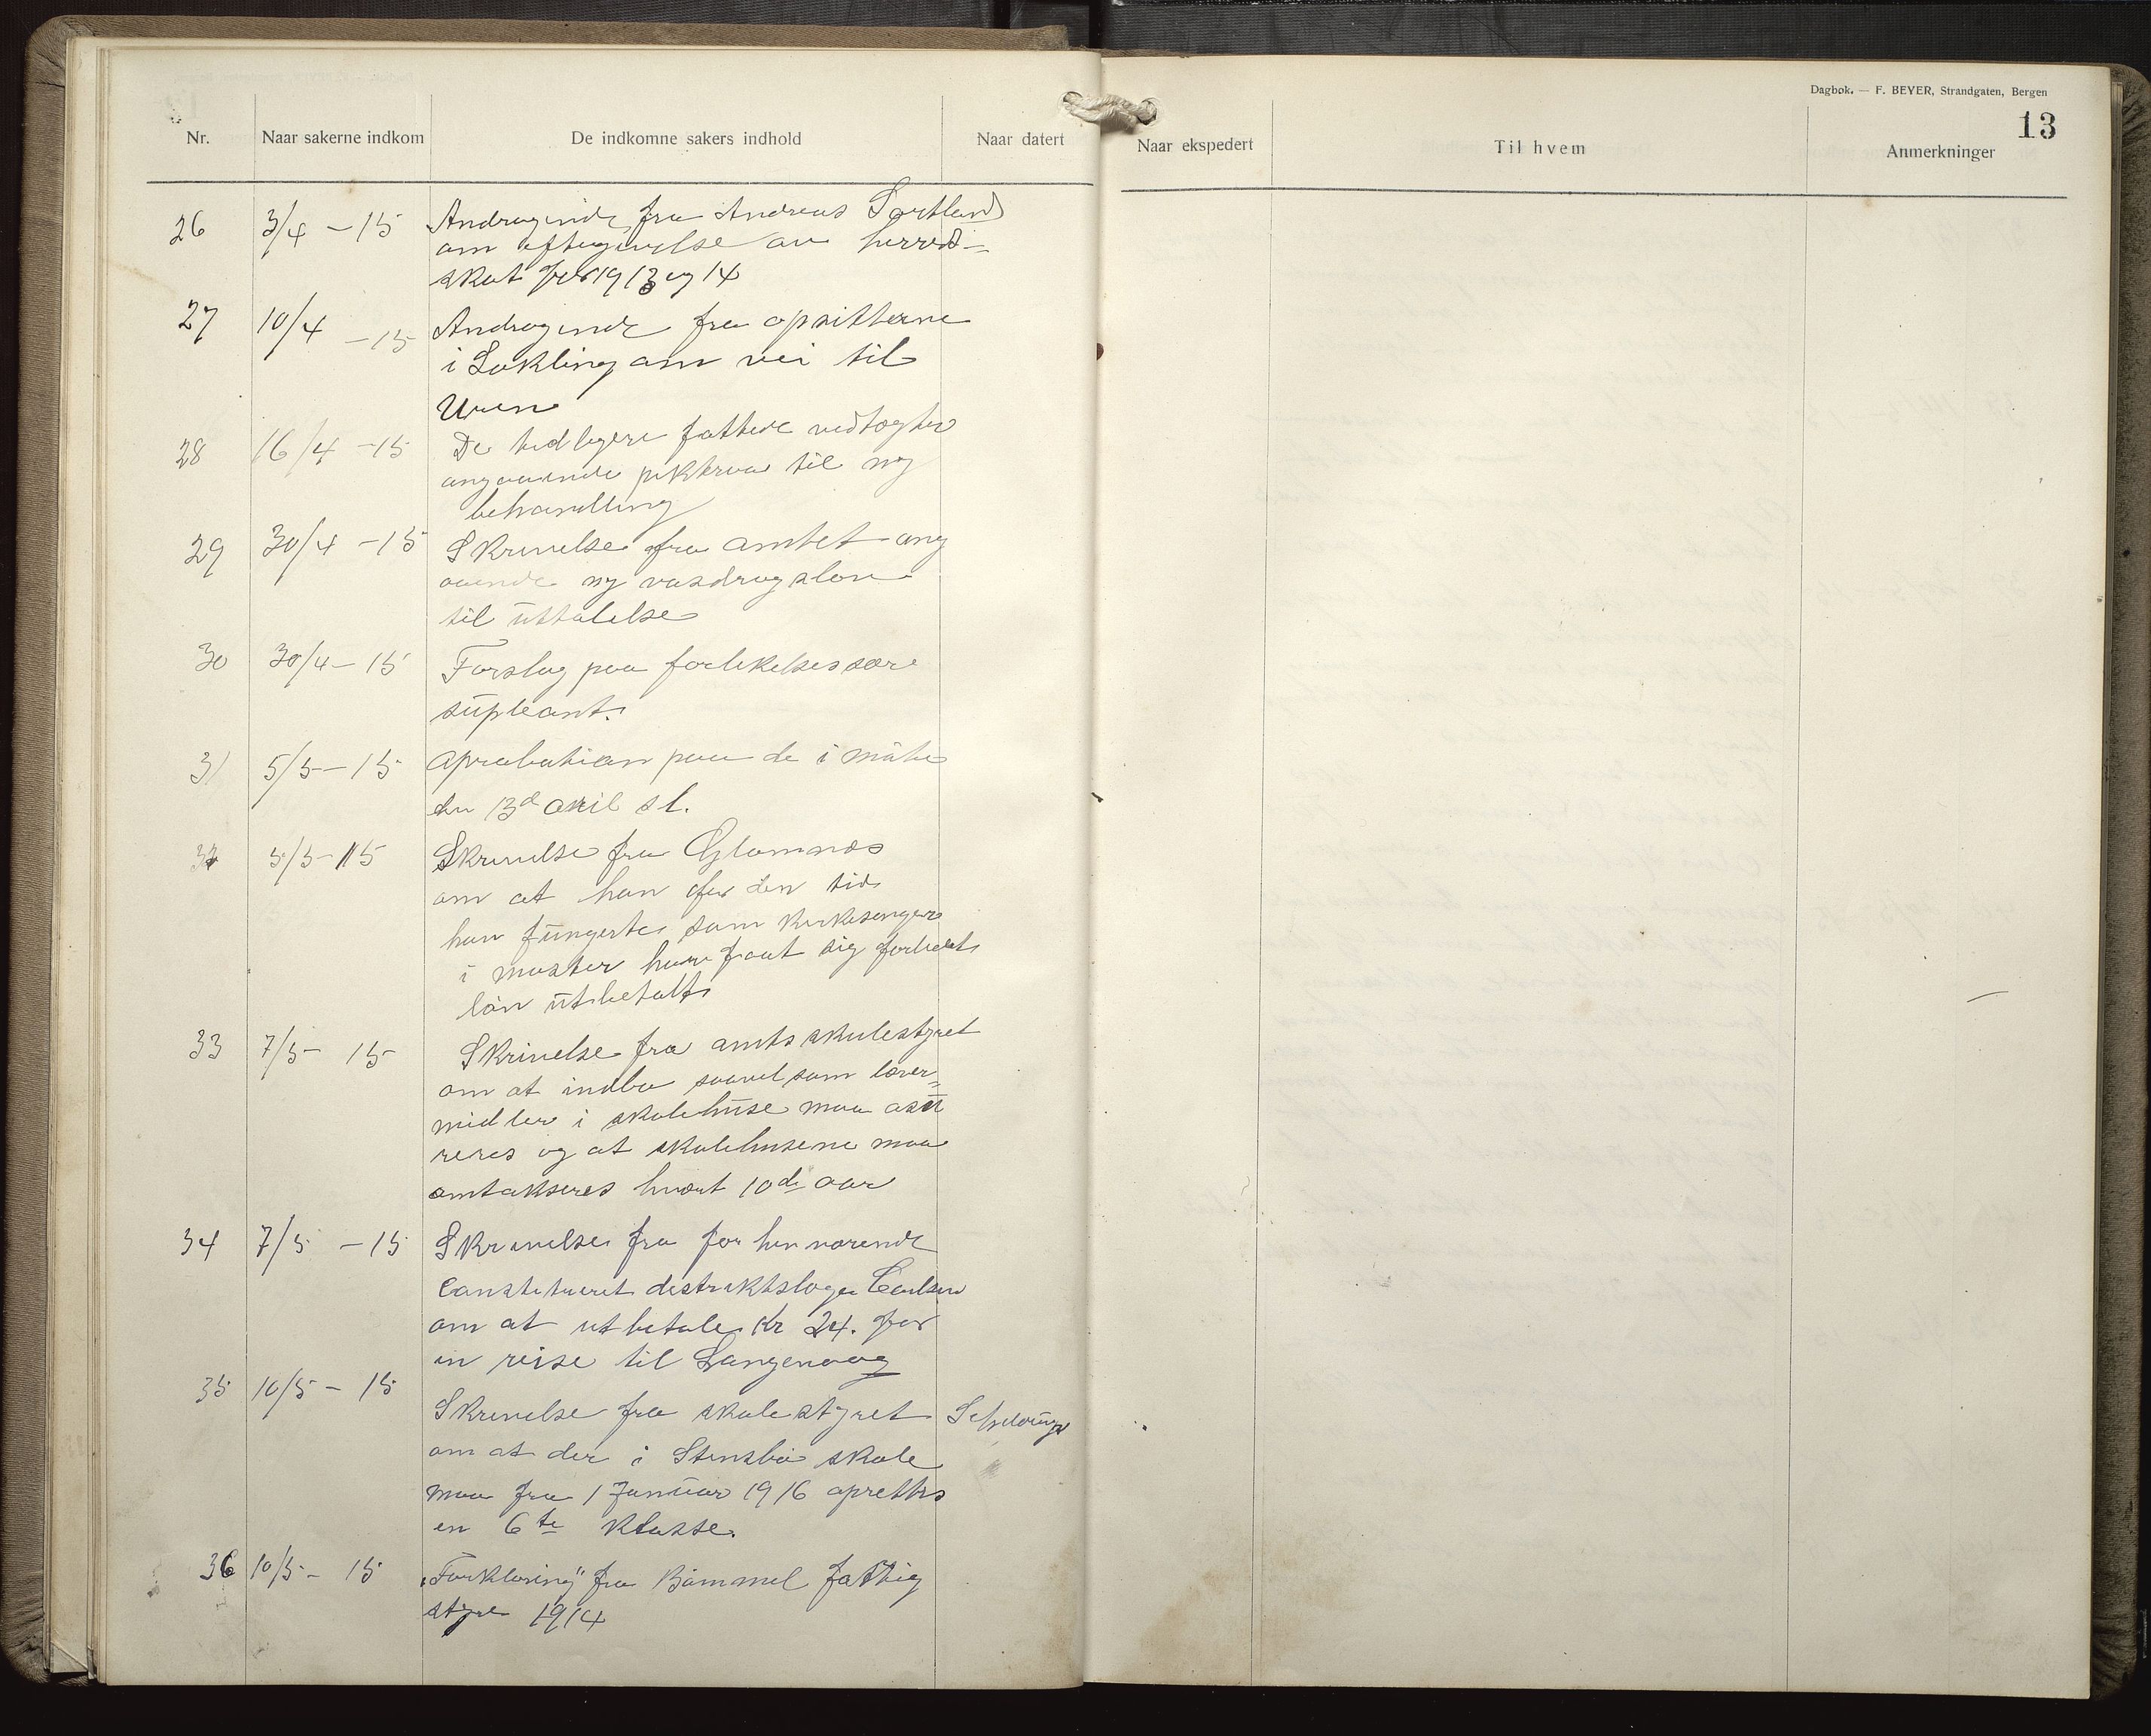 Dagbok. — F. BEYER, Strandgaten, Bergen
13
Nr. Naar sakerne indkom De indkomne sakers indhold Naar datert Naar ekspedert Til hvem Anmerkninger
26 3/4 - 15 Andragende fra Andreas Sortland
om eftergivelse av herreds-
skat for 1913 og 14
27 10/4 - 15 Andragende fra opsitterne
i Lokling om vei til
Uren
28 16/4 - 15 De tidligere fattede vedtægter
angaaende piktraa til ny
behandling
29 30/4 - 15 Skrivelse fra amtet ang
aaende ny vasdragslov
til uttalelse
30 30/4 - 15 Forslag paa forlikelses
supleant.
31 5/5 - 15 Aprobation paa de i møte
den 13d april sl.
32 5/5 - 15 Skrivelse fra Glomnæs
om at han for den tid
han fungerte som kirkesanger
i moster har faat sig
løn utbetalt
33 7/5 - 15 Skrivelse fra amtsskulestyret
om at indbo saavel som lærer=
midler i skolehuse maa asü
reres og at skolehusene maa
omtakseres hvert 10de aar
34 7/5 - 15 Skrivelse fra forhenværende
Constitueret destriktslæge Carlsen
om at utbetale Kr 24. for
en reise til Langevaag
35 10/5 - 15
Skrivelse fra skolestyret
om at der i Stensbø skole
maa fra 1 Januar 1916 oprettes
en 6te klasse.
36 10/5 - 15 "Forklaring" fra Bømmel fattig
styre 1914